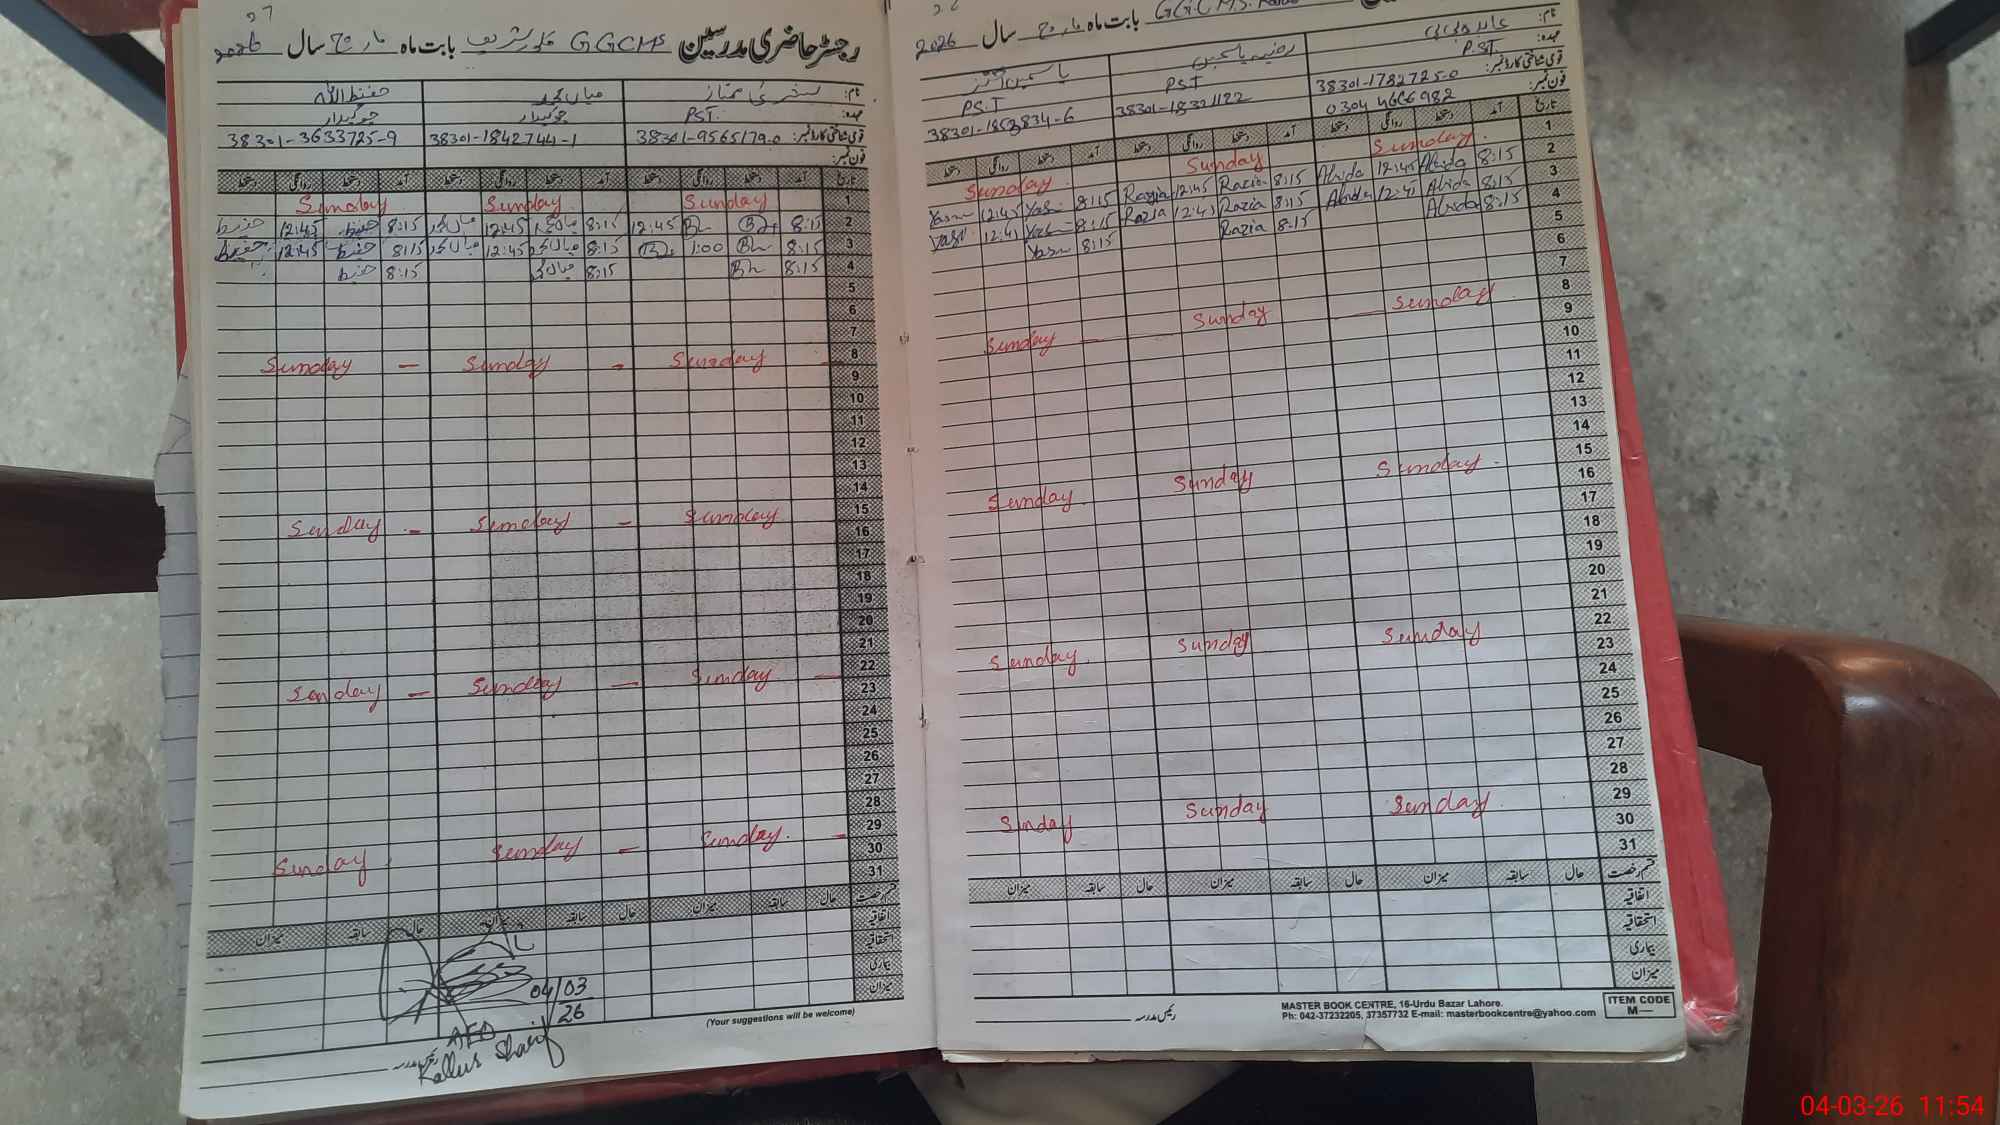 27
رجسٹر حاضری مدرسین GGCMS کلور شریف بابت ماہ مارچ سال 2026
نام: بشریٰ ممتاز میاں محمد حفیظ اللہ
عہدہ: PST. چوکیدار چوکیدار
قومی شناختی کارڈ نمبر: 38301-9565179-0 38301-1842744-1 38301-3633725-9
فون نمبر:
تاریخ آمد دستخط روانگی دستخط آمد دستخط روانگی دستخط آمد دستخط روانگی دستخط
1 Sunday Sunday Sunday
2 8:15 12:45 8:15 میاں محمد 12:45 میاں محمد 8:15 حفیظ 12:45 حفیظ
3 8:15 1:00 8:15 میاں محمد 12:45 میاں محمد 8:15 حفیظ 12:45 حفیظ
4 8:15 8:15 میاں محمد 8:15 حفیظ
5
6
7
8 Sunday – Sunday – Sunday
9
10
11
12
13
14
15 Sunday – Sunday – Sunday
16
17
18
19
20
21
22 Sunday – Sunday – Sunday –
23
24
25
26
27
28
29 Sunday Sunday – Sunday. –
30
31
قسم رخصت حال سابقہ میزان حال سابقہ میزان حال سابقہ میزان
اتفاقیہ
استحقاقیہ
بیماری
میزان
04/03
26
AEO
Kallur Sharif
(Your suggestions will be welcome)
رئیس مدرسہ
بابت ماہ مارچ سال 2026
GGCMS.
نام: عابدہ بی بی رضیہ یاسمین یاسمین اختر
عہدہ: P.S.T. PST PS.T
قومی شناختی کارڈ نمبر: 38301-1782725-0 38301-1853834-6
فون نمبر: 0304
تاریخ آمد دستخط روانگی دستخط آمد دستخط روانگی دستخط آمد دستخط روانگی دستخط
1 Sunday. Sunday Sunday.
2 8:15 Abida 12:45 Abida 8:15 Razia 12:45 Razia 8:15 Yasm 12:45 Yasm
3 8:15 Abida 12:45 Abida 8:15 Razia 12:45 Razia 8:15 Yasm 12:45 Yasm
4 8:15 Abida 8:15 Razia 8:15 Yasm
5
6
7
8 Sunday Sunday Sunday
9
10
11
12
13
14
15 Sunday Sunday Sunday
16
17
18
19
20
21
22 Sunday Sunday Sunday
23
24
25
26
27
28
29 Sunday Sunday Sunday
30
31
قسم رخصت حال سابقہ میزان حال سابقہ میزان حال سابقہ میزان
اتفاقیہ
استحقاقیہ
بیماری
میزان
رئیس مدرسہ
MASTER BOOK CENTRE, 16-Urdu Bazar Lahore.
Ph: 042-37232205, 37357732 E-mail: masterbookcentre@yahoo.com
ITEM CODE
M—
04-03-26 11:54